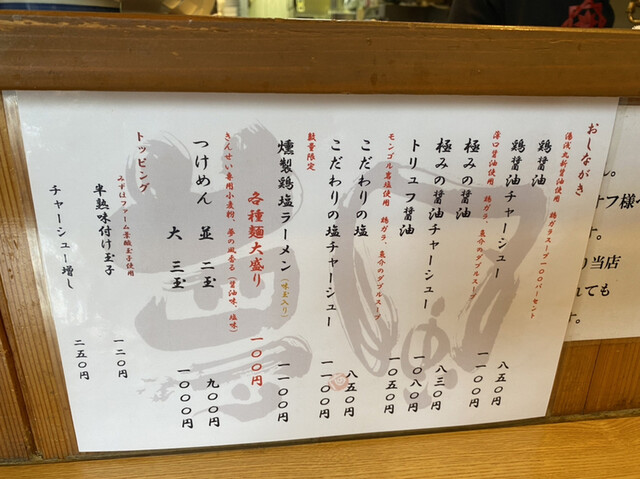 おしながき
湯浅九新醤油使用　鶏ガラスープ一〇〇パーセント
鶏醤油　八五〇円
鶏醤油チャーシュー　一一〇〇円
薄口醤油使用　鶏ガラ、魚介のダブルスープ
極みの醤油　八三〇円
極みの醤油チャーシュー　一〇八〇円
トリュフ醤油　一〇五〇円
モンゴル岩塩使用　鶏ガラ、魚介のダブルスープ
こだわりの塩　八五〇円
こだわりの塩チャーシュー　一一〇〇円
数量限定
燻製鶏塩ラーメン（味玉入り）　一一〇〇円
各種麺大盛り　一〇〇円
きんせい専用小麦粉、夢の風香る（醤油味、塩味）
つけめん　並　二玉　九〇〇円
大　三玉　一〇〇〇円
トッピング
みずほファーム葉酸玉子使用
半熟味付け玉子　一二〇円
チャーシュー増し　二五〇円
ん。
フ様へ
す。
り当店
れても
す。